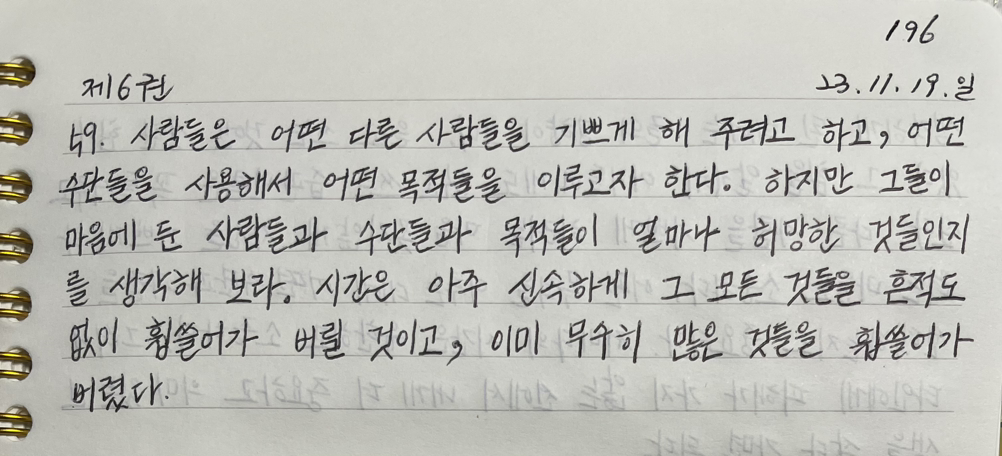 196
제6권 23.11.19.일
59. 사람들은 어떤 다른 사람들을 기쁘게 해 주려고 하고, 어떤
수단들을 사용해서 어떤 목적들을 이루고자 한다. 하지만 그들이
마음에 둔 사람들과 수단들과 목적들이 얼마나 허망한 것들인지
를 생각해 보라. 시간은 아주 신속하게 그 모든 것들을 흔적도
없이 휩쓸어가 버릴 것이고, 이미 무수히 많은 것들을 휩쓸어가
버렸다.